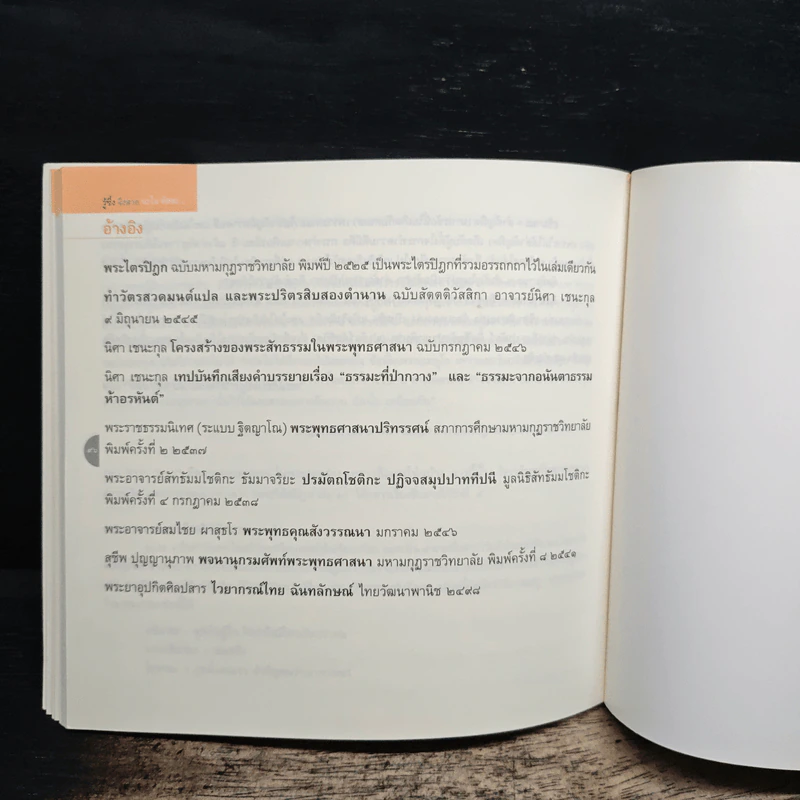 รู้ซึ้ง
อ้างอิง
พระไตรปิฎก ฉบับมหามกุฏราชวิทยาลัย พิมพ์ปี ๒๕๒๕ เป็นพระไตรปิฎกที่รวมอรรถกถาไว้ในเล่มเดียวกัน
ทำวัตรสวดมนต์แปล และพระปริตรสิบสองตำนาน ฉบับสัตตติวัสสิกา อาจารย์นิศา เชนะกุล
๙ มิถุนายน ๒๕๔๕
นิศา เชนะกุล โครงสร้างของพระสัทธรรมในพระพุทธศาสนา ฉบับกรกฎาคม ๒๕๔๖
นิศา เชนะกุล เทปบันทึกเสียงคำบรรยายเรื่อง "ธรรมะที่ป่ากวาง" และ "ธรรมะจากอนันตาธรรม
ห้าอรหันต์"
พระราชธรรมนิเทศ (ระแบบ ฐิตญาโณ) พระพุทธศาสนาปริทรรศน์ สภาการศึกษามหามกุฏราชวิทยาลัย
พิมพ์ครั้งที่ ๒ ๒๕๓๗
พระอาจารย์สัทธัมมโชติกะ ธัมมาจริยะ ปรมัตถโชติกะ ปฏิจจสมุปปาททีปนี มูลนิธิสัทธัมมโชติกะ
พิมพ์ครั้งที่ ๔ กรกฎาคม ๒๕๓๘
พระอาจารย์สมไชย ผาสุธโร พระพุทธคุณสังวรรณนา มกราคม ๒๕๔๖
สุชีพ ปุญญานุภาพ พจนานุกรมศัพท์พระพุทธศาสนา มหามกุฏราชวิทยาลัย พิมพ์ครั้งที่ ๘ ๒๕๔๑
พระยาอุปกิตศิลปสาร ไวยากรณ์ไทย ฉันทลักษณ์ ไทยวัฒนาพานิช ๒๔๙๘